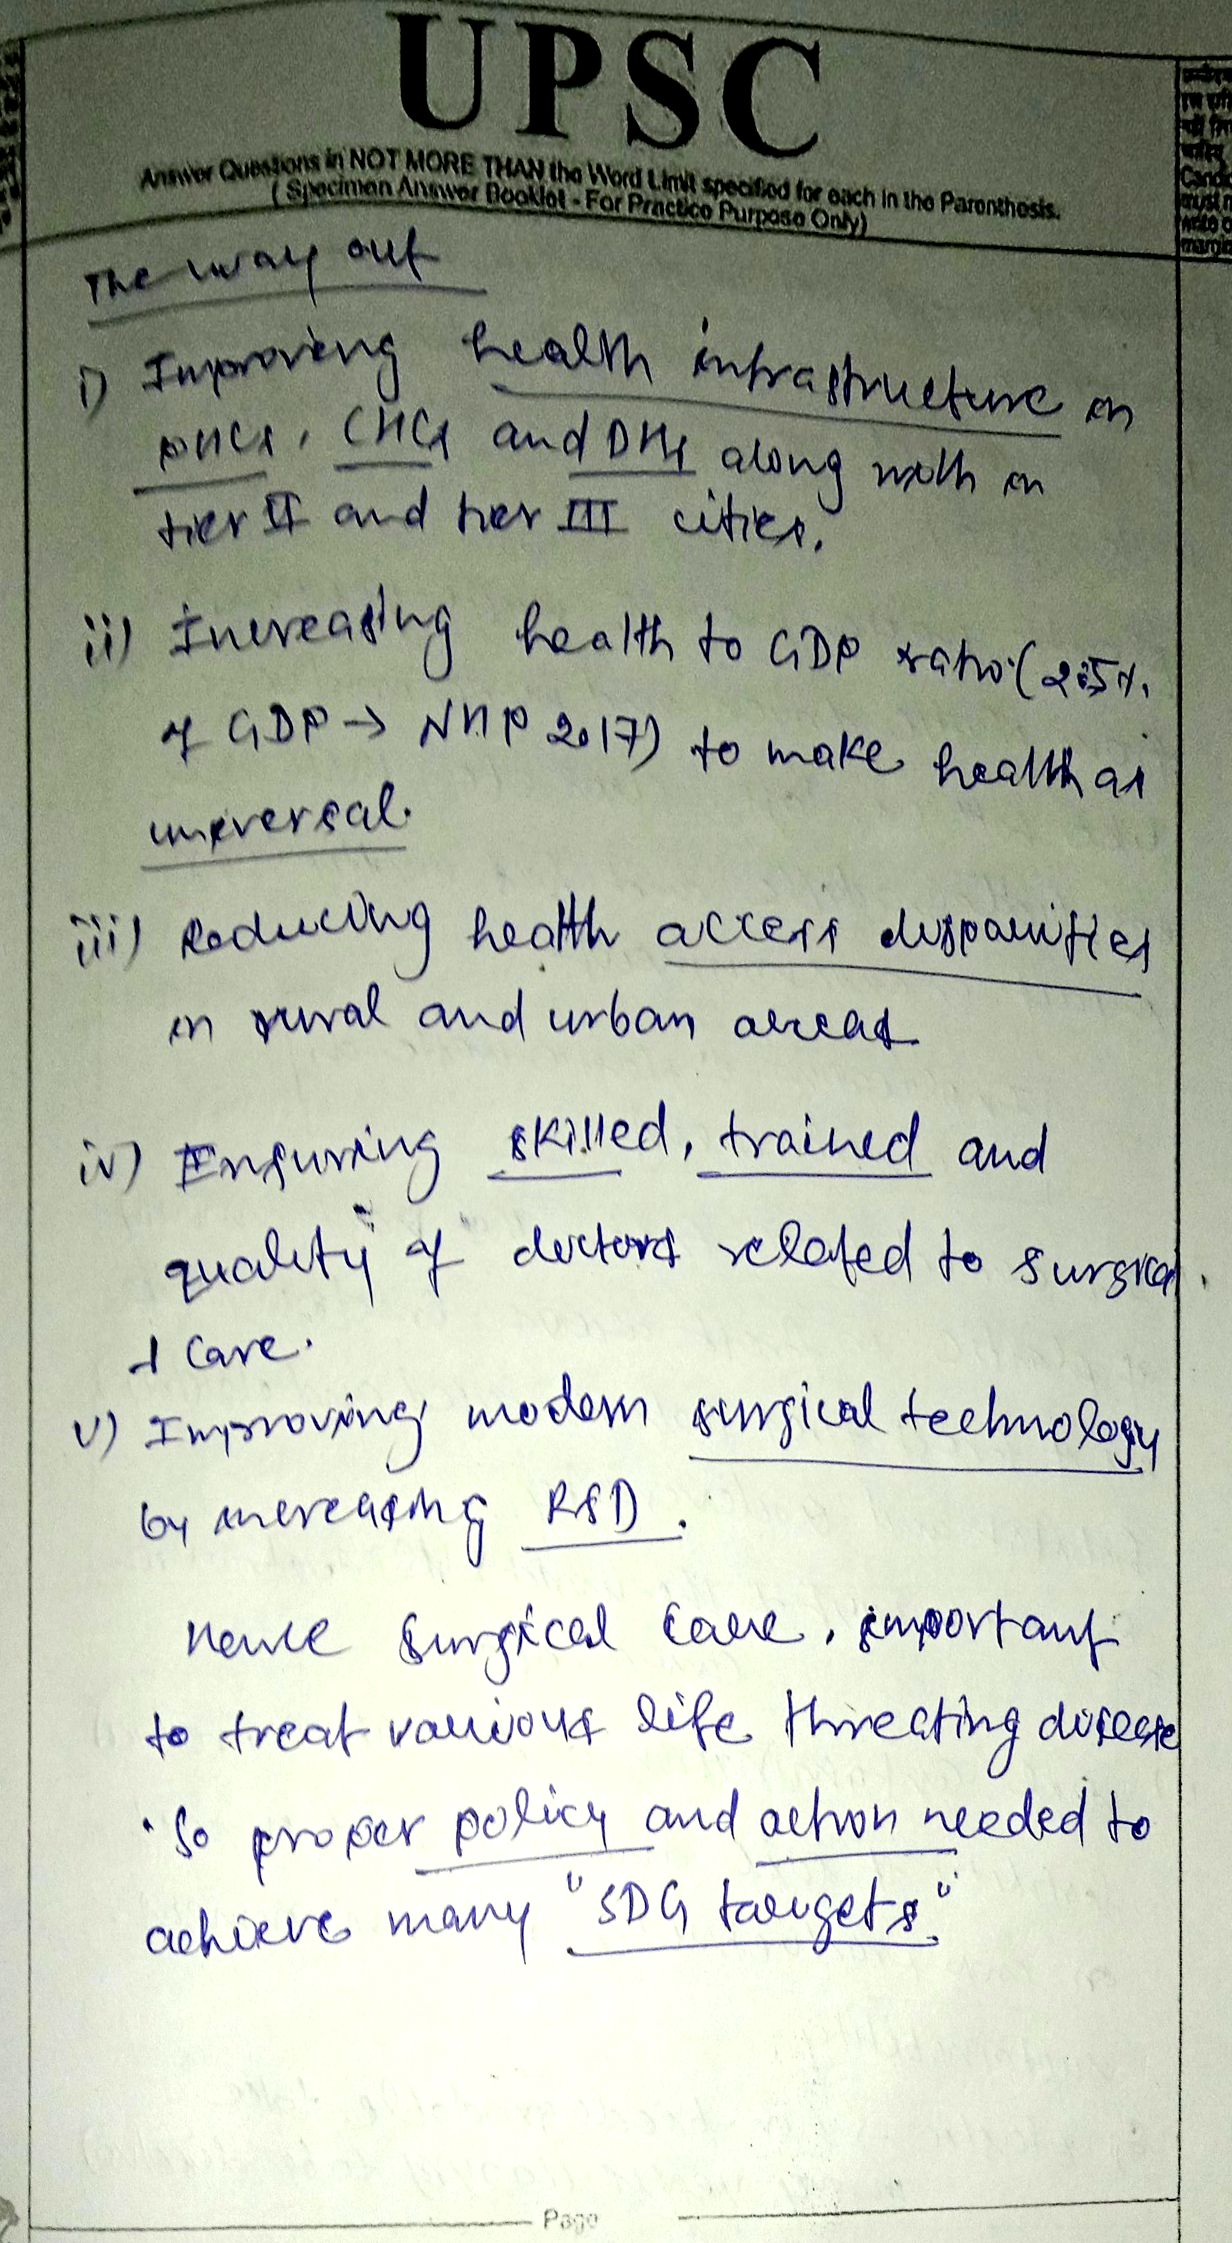 UPSC
Answer Questions in NOT MORE THAN the Word Limit specified for each in the Parenthesis.
( Specimen Answer Booklet - For Practice Purpose Only)
The way out
i) Improving health infrastructure in
PHCs, CHCs and DHs along with in
tier II and tier III cities.
ii) Increasing health to GDP ratio (2.5%
of GDP → NHP 2017) to make health as
universal.
iii) Reducing health access disparities
in rural and urban areas
iv) Ensuring skilled, trained and
quality of doctors related to surgical
care.
v) Improving modern surgical technology
by increasing R&D.
Hence surgical care, important
to treat various life threating disease
. So proper policy and action needed to
achieve many "SDG targets"
Page